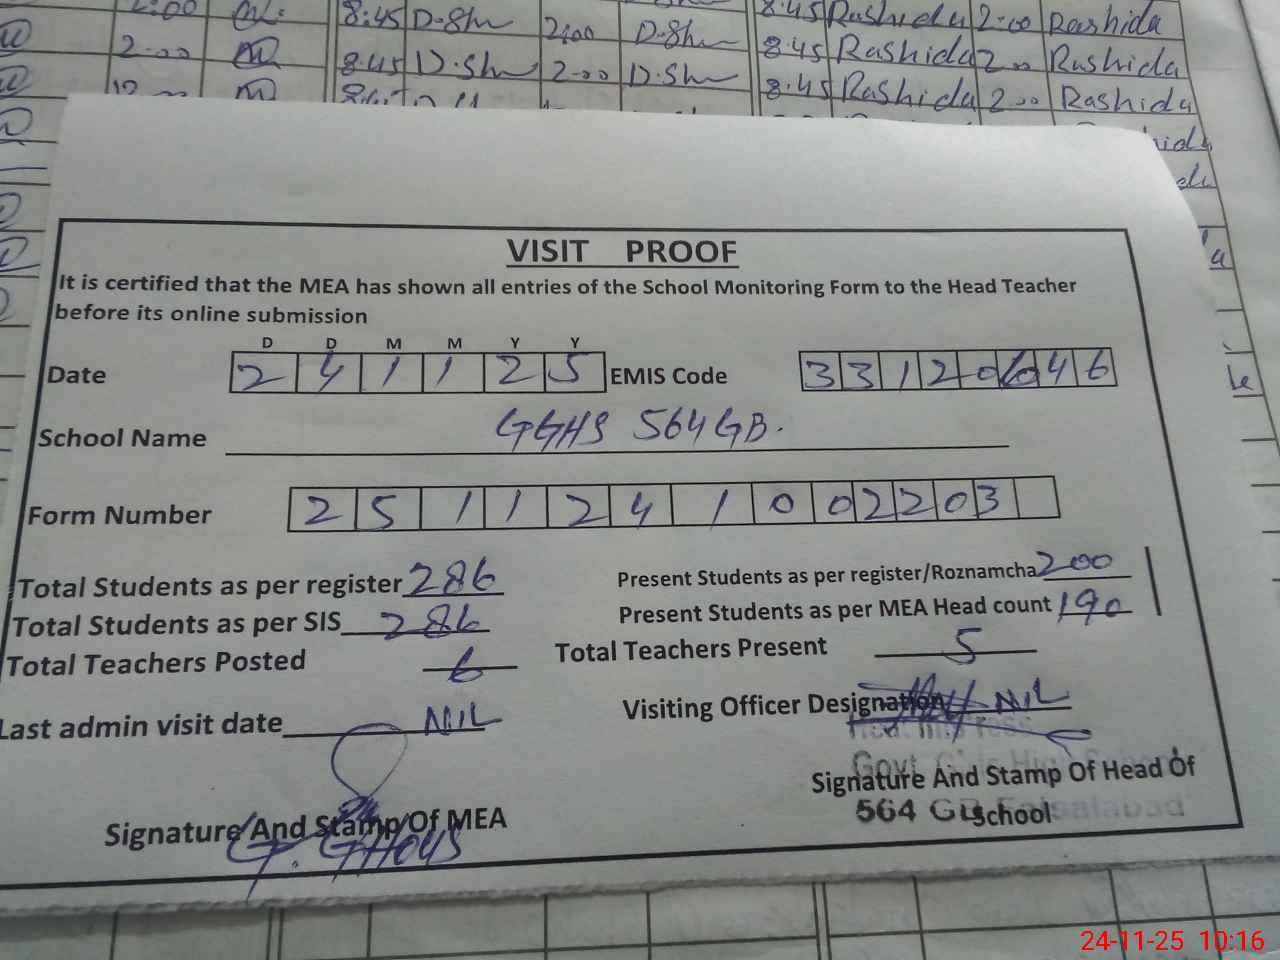 2:00 8:45 D.Shu 2:00 D.Shu 8:45 Rashida 2:00 Rashida
2:00 8:45 D.Shu 2:00 D.Shu 8:45 Rashida 2:00 Rashida
8:45 Rashida 2:00 Rashida
VISIT PROOF
It is certified that the MEA has shown all entries of the School Monitoring Form to the Head Teacher
before its online submission
D D M M Y Y
Date 2 4 1 1 2 5 EMIS Code 3 3 1 2 0 6 4 6
School Name GGHS 564 GB.
Form Number 2 5 1 1 2 4 1 0 0 2 2 0 3
Total Students as per register 286 Present Students as per register/Roznamcha 200
Total Students as per SIS 286 Present Students as per MEA Head count 190
Total Teachers Posted 6 Total Teachers Present 5
Last admin visit date NIL Visiting Officer Designation NIL
Govt. Girls High School
Signature And Stamp Of MEA Signature And Stamp Of Head Of
School
564 GB Faisalabad
24-11-25 10:16